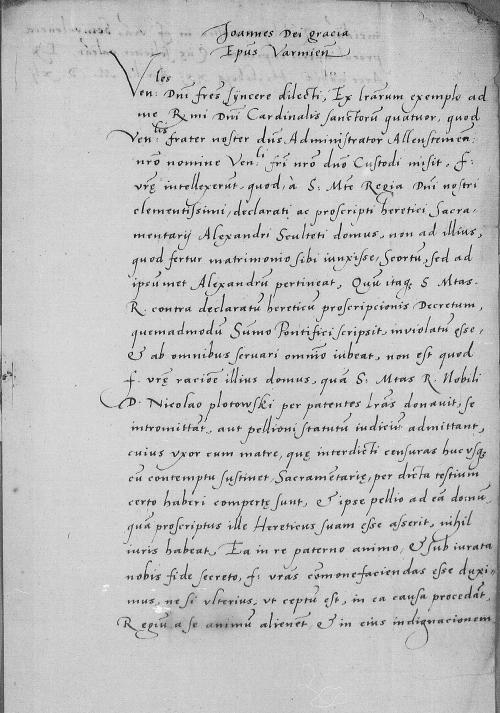 Joannes Dei gracia
Epus Varmien
Vles
Ven: Dni fres syncere dilecti, Ex lrarum exemplo ad
me Rmi Dni Cardinalis sanctoru quatuor, quod
Venlis frater noster dns Administrator Allensteinen:
nro nomine Venli fri nro dno Custodi misit, f:
vrę intellexerut, quod, à S: Mte Regia Dni nostri
clementissimi, declarati ac proscripti heretici Sacra-
mentarij Alexandri Sculteti domus, non ad illius,
quod fertur matrimonio sibi iunxisse, Scortu, sed ad
ipsummet Alexandru pertineat, Quu itaq; S Mtas.
R. contra declaratu hereticu proscripcionis Decretum,
quemadmodu Sumo Pontifici scripsit, inviolatu esse,
& ab omnibus servari omnio iubeat, non est quod
f. vrę racioe illius domus, qua S: Mtas R. Nobili
D. Nicolao plotowski per patentes lras donauit, se
intromittat, aut pellioni statutu iudiciu admittant,
cuius vxor cum matre, quę interdicti censuras hucusq;
cu contemptu sustinet, Sacramentarię, per dicta testium
certo haberi compertę sunt, & ipse pellio ad ea domu,
qua proscriptus ille Hereticus suam esse asserit, nihil
iuris habeat, Ea in re paterno animo, & sub iurata
nobis fide secreto, f: vras comonefaciendas esse duxi-
mus, ne si vlterius, vt ceptu est, in ea causa procedat,
Regiu a se animu alienet, & in eius indignacionem